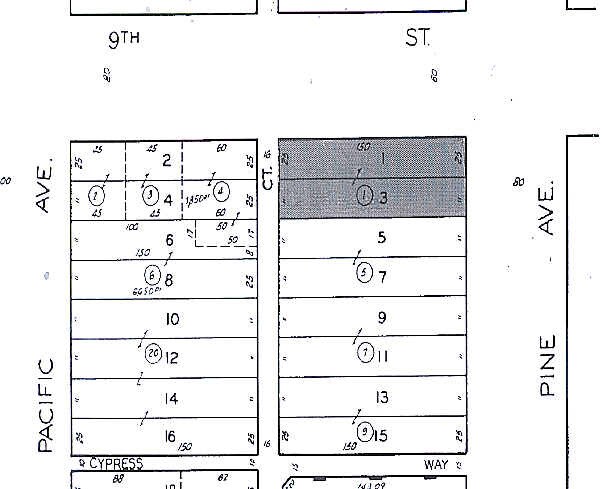 9TH ST.
80 60
45 45 60 16 150
25 2 25 25 1 25
00 AVE. CT. 80 AVE.
2 3 4 4 1,850 1 3
45 45 60
100 50
6 17 50 17 5
150 8
6 8 25 5 7
6650
10 9
20 12 7 11
14 13
PACIFIC PINE
25 16 25 16 25 9 15 25
150 150
CYPRESS WAY
88 62 15